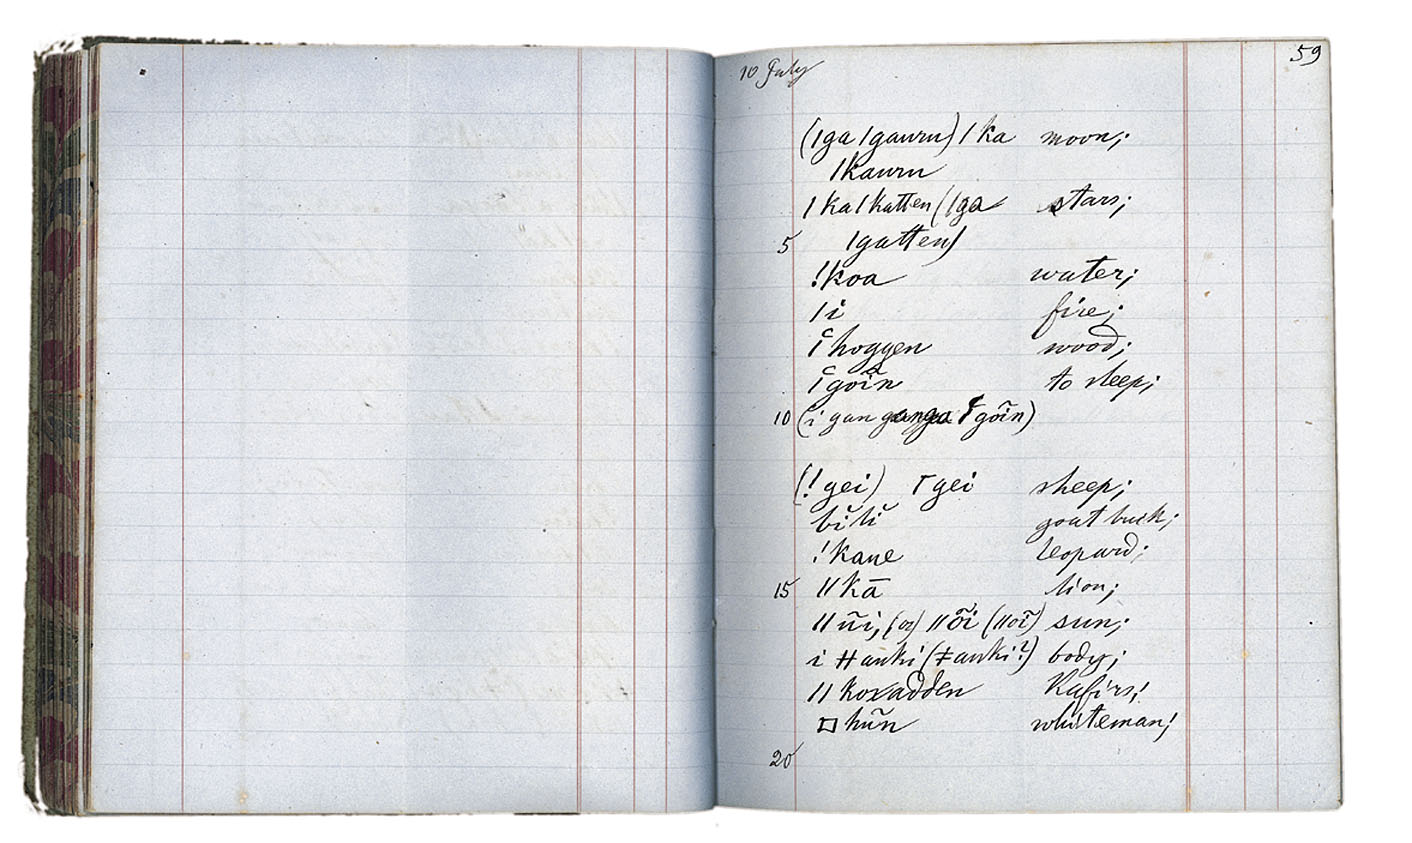 10 July
59
(|ga |gauru) |ka moon;
|kauru
|ka|katten (|ga stars;
5 |gatten)
!koa water;
|i fire;
hoggen wood;
goĩn to sleep;
10 (i gan goĩn)
(!gei) ſgei sheep;
goat buck;
!kane leopard;
15 ||kā lion;
||ũi, (or) ||õi (||oĩ) sun;
i ǂanki (ǂanki?) body;
||koxadden Kafirs;
□hũn whiteman;
20